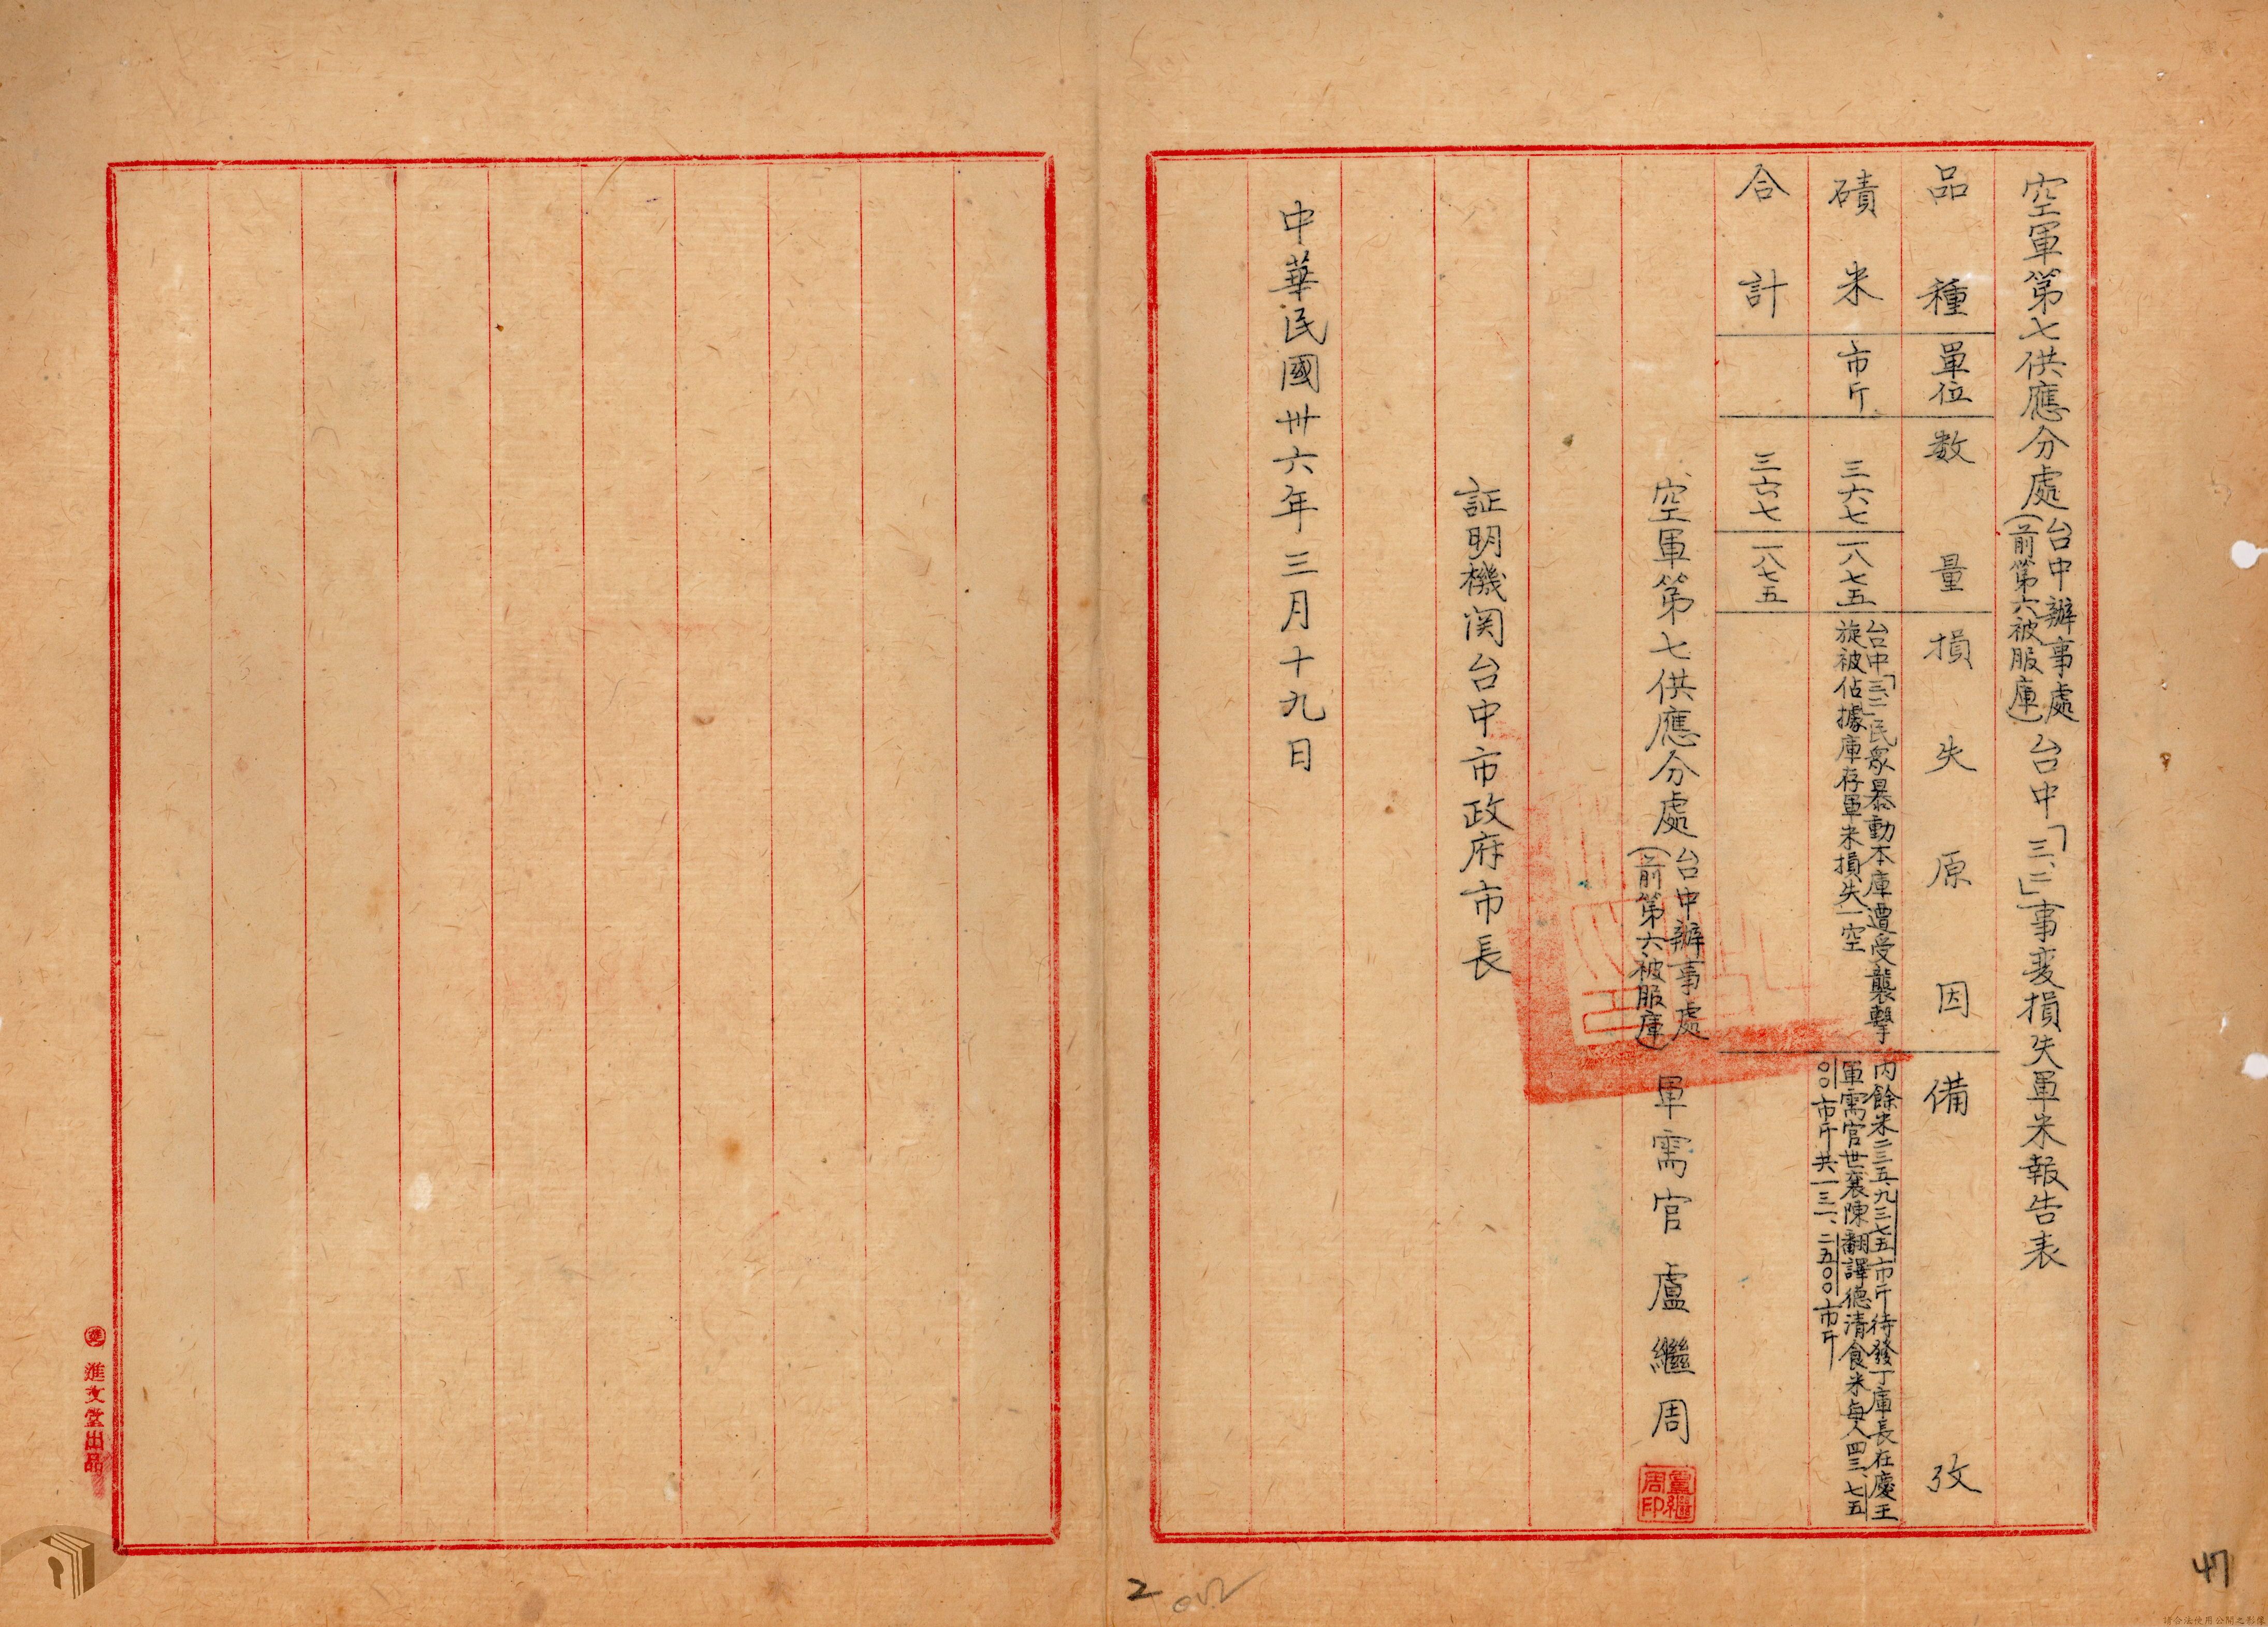 空軍第七供應分處台中辦事處(前第六被服庫)台中「三、二」事変損失軍米報告表
品種 單位 数量 損失原因 備攷
磧米 市斤 三六、七 一八七五 台中「三、二」民衆暴動本庫遭受襲擊
旋被佔據庫存軍米損失一空
內餘米二三五、九三七五市斤待發丁庫長在慶王
軍需官世襄陳翻譯德清食米每人四三、七五
〇〇市斤共一三一、二五〇〇市斤
合計 三六、七 一八七五
空軍第七供應分處台中辦事處(前第六被服庫)軍需官盧繼周
盧繼周印
証明機関台中市政府市長
中華民國卅六年三月十九日
進文堂出品
2
47
請合法使用公開之影像